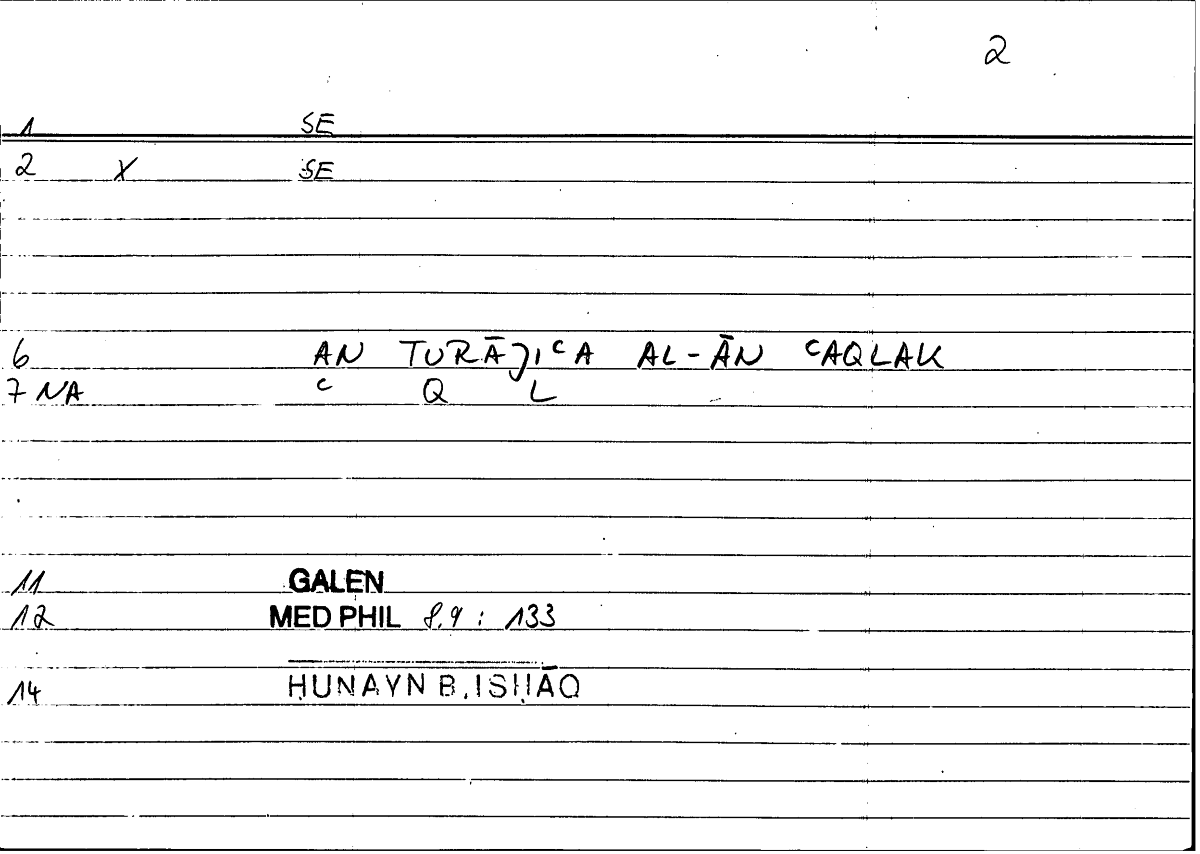 2
1 SE
2 X SE
6 AN TURĀJIᶜA AL-ĀN ᶜAQLAK
7 NA ᶜ Q L
11 GALEN
12 MED PHIL 8.9 : 133
14 ḤUNAYN B. ISḤĀQ